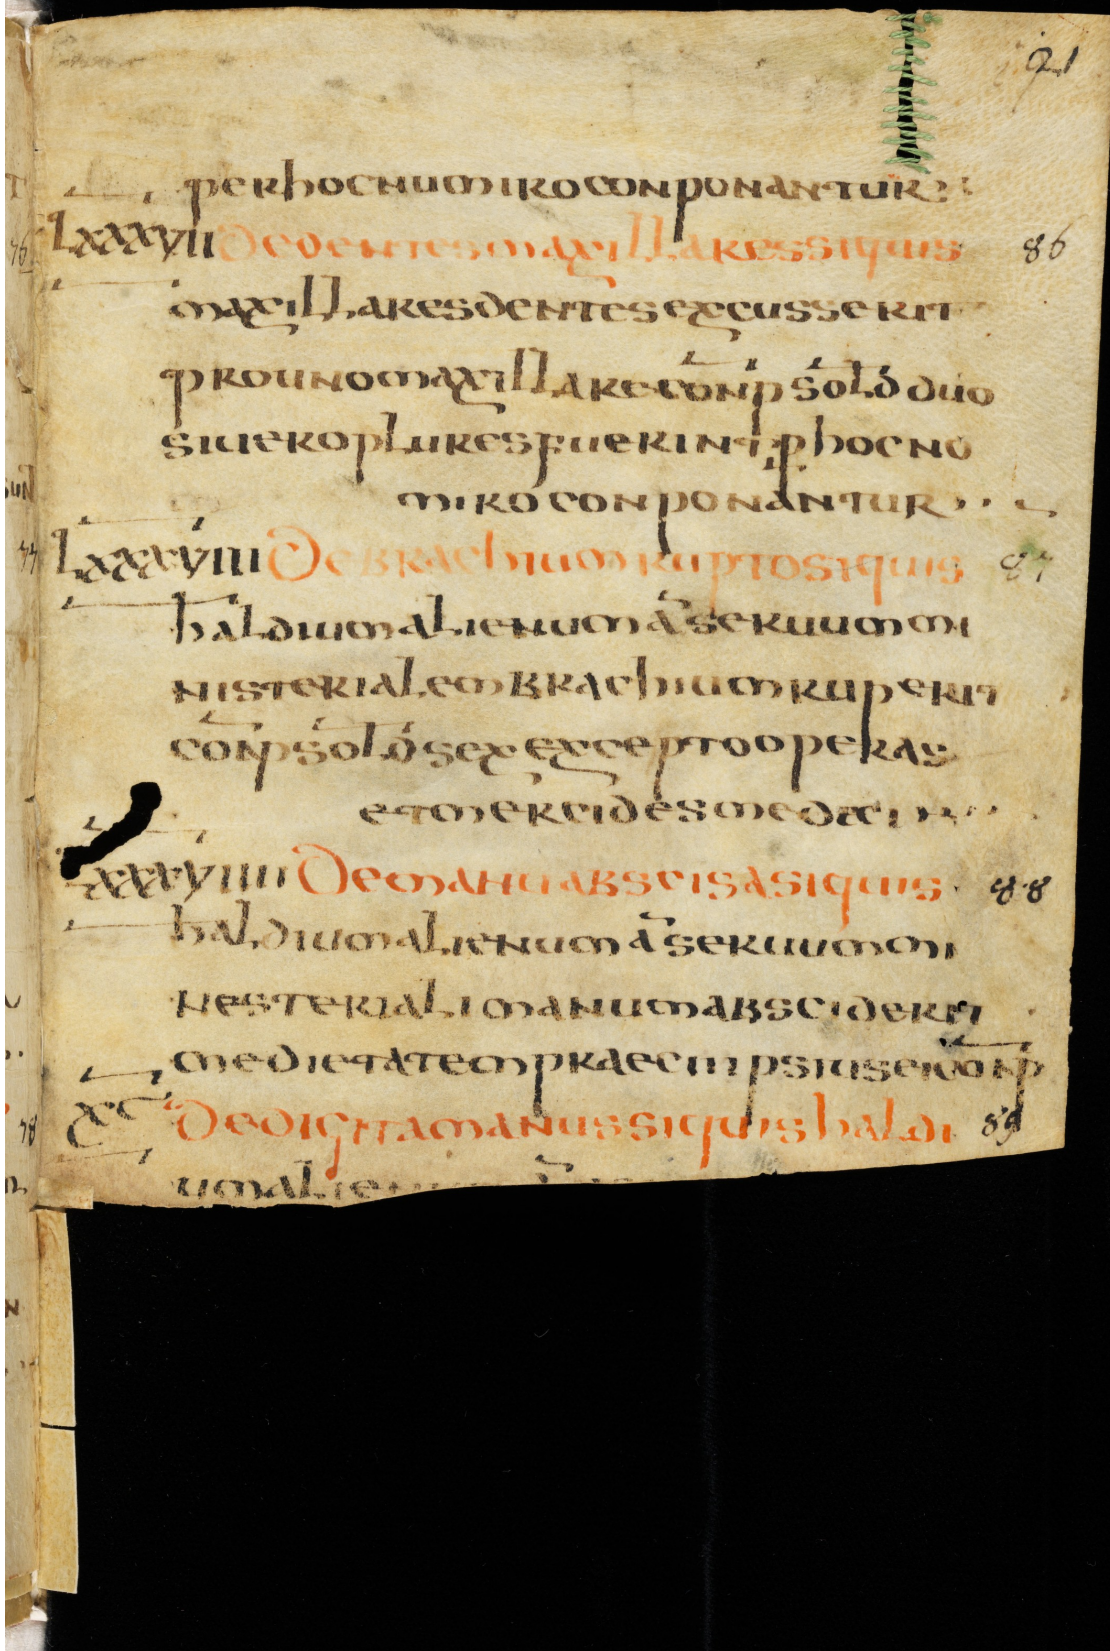 21
per hoc numiro conponantur
LXXXVII De dentes maxillares si quis 86
maxillares dentes excusserit
pro uno maxillare conp sold duo
si uero plures fuerint p hoc no
miro conponantur
LXXXVIII De brachium rupto si quis 87
haldium alienum a seruum mi
nisterialem brachium ruperit
conp sold sex excepto operas
et mercides
XXXVIIII De manu abscisa si quis 88
haldium alienum a seruum mi
nesteriali manum absciderit
medietatem praecii ipsius ei conp
XC De digita manus si quis haldi 89
um